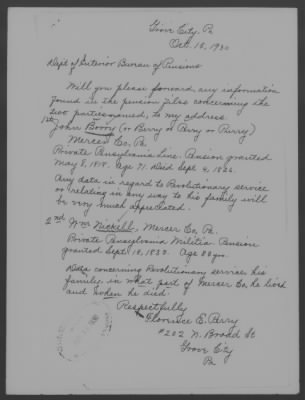 Grove City, Pa
Oct. 15, 1930
Dept of Interior Bureau of Pensions
Will you please forward any information
found in the pension files concerning the
two parties named, to my address.
1st John Berry (or Berry or Pery or Purry)
Mercer Co, Pa.
Private Pensylvania Line. Pension granted
May 8, 1818. Age 71. Died Sept 4, 1826.
Any data in regard to Revolutionary service
or relating in any way to his family will
be very much appreciated.
2nd Wm Nickell, Mercer Co, Pa.
Private Pensylvania Militia. Pension
granted Sept. 18, 1833. Age 80 yr.
Data concerning Revolutionary service, his
family, in what part of Mercer Co. he lived
and when he died.
Respectfully
Florence E. Perry
#202 N. Broad St
Grove City
Pa